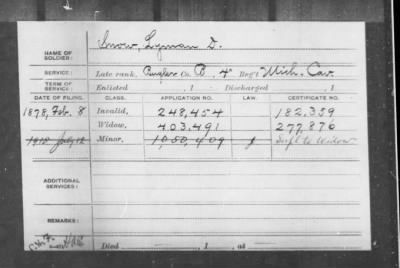 NAME OF SOLDIER: Snow, Lyman D.
SERVICE: Late rank, Bugler Co. B, 4 Reg't Mich. Cav.
TERM OF SERVICE: Enlisted , 1 Discharged , 1
DATE OF FILING. CLASS. APPLICATION NO. LAW. CERTIFICATE NO.
1878, Feb. 8 Invalid, 248,454 182,359
Widow, 403,491 277,876
1918 July 12 Minor, 1,050,409 Infl to Widow
ADDITIONAL SERVICES:
REMARKS:
Died , 1 , at